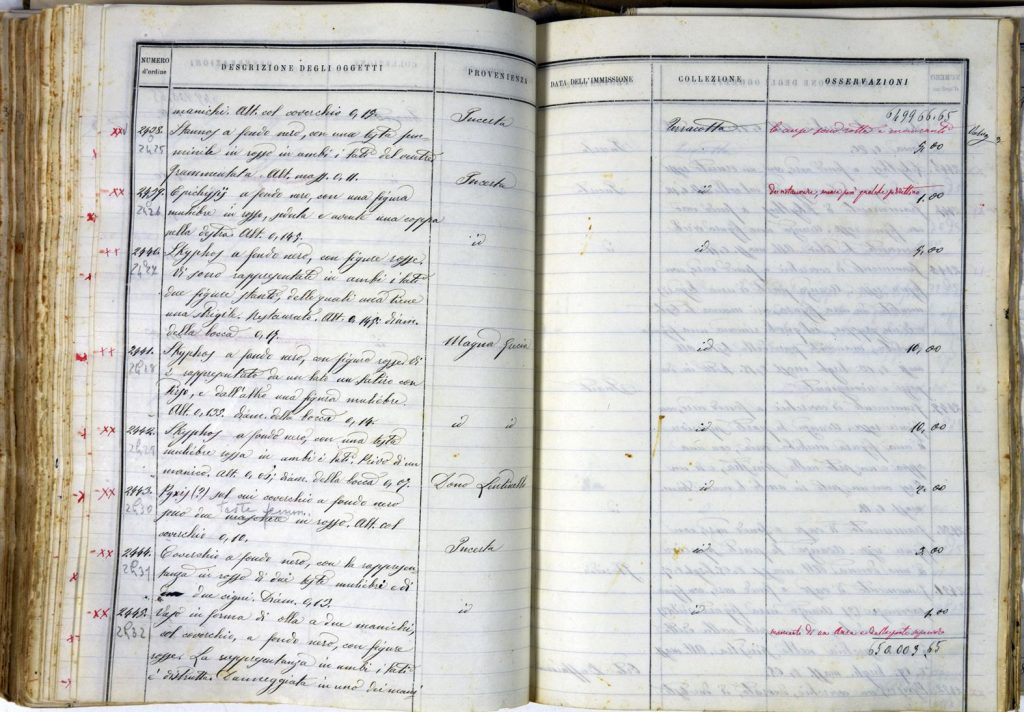 NUMERO d'ordine
DESCRIZIONE DEGLI OGGETTI
PROVENIENZA
DATA DELL'IMMISSIONE
COLLEZIONE
OSSERVAZIONI
649966.65
manichi. Alt. col coverchio 0,15.
Incerta
2438. Stamnos a fondo nero, con una testa fem
Terracotta
Le anse sono rotte e mancanti
5,00
2425 minile in rosso in ambi i lati del ventre
frammentata. Alt. mass. 0,11.
Incerta
2439. Epichysis a fondo nero, con una figura
id
1,00
2426 muliebre in rosso, seduta e avente una coppa
nella destra. Alt. 0,145.
id
2440. Skyphos a fondo nero, con figure rosse
id
5,00
2427 Vi sono rappresentate in ambi i lati
due figure stanti, delle quali una tiene
una strigile. Restaurato. Alt. 0,145: diam.
della bocca 0,17.
Magna Grecia
2441. Skyphos a fondo nero, con figure rosse. Vi
id
10,00
2428 è rappresentato da un lato un satiro con
tirso, e dall'altro una figura muliebre.
Alt. 0,155. diam. della bocca 0,14.
id id
2442. Skyphos a fondo nero, con una testa
id
10,00
2429 muliebre rossa in ambi i lati. Privo di un
manico. Alt. 0,05; diam. della bocca 0,07.
Dono
2443. Pyxis (?) sul cui coverchio a fondo nero
id
2,00
2430 sono due teste femm. in rosso. Alt. col
coverchio 0,10.
Incerta
2444. Coverchio a fondo nero, con la rappresen
id
3,00
2431 tanza in rosso di due teste muliebri e di
due cigni. Diam. 0,13.
id
2445. Vaso in forma di olla a due manichi,
id
1,00
2432 col coverchio, a fondo nero, con figure
mancante di un'ansa e dalla parte
rosse. La rappresentanza in ambi i lati
650.003,65
è distrutta. Danneggiata in uno dei mani